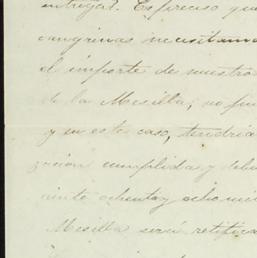 entregar? Es preciso que
necesitamos
el importe de nuestro
de la Mesilla; no pu
y en este caso, tendria
zacion cumplida y debi
ciento ochenta y ocho mi
Mesilla será retifica